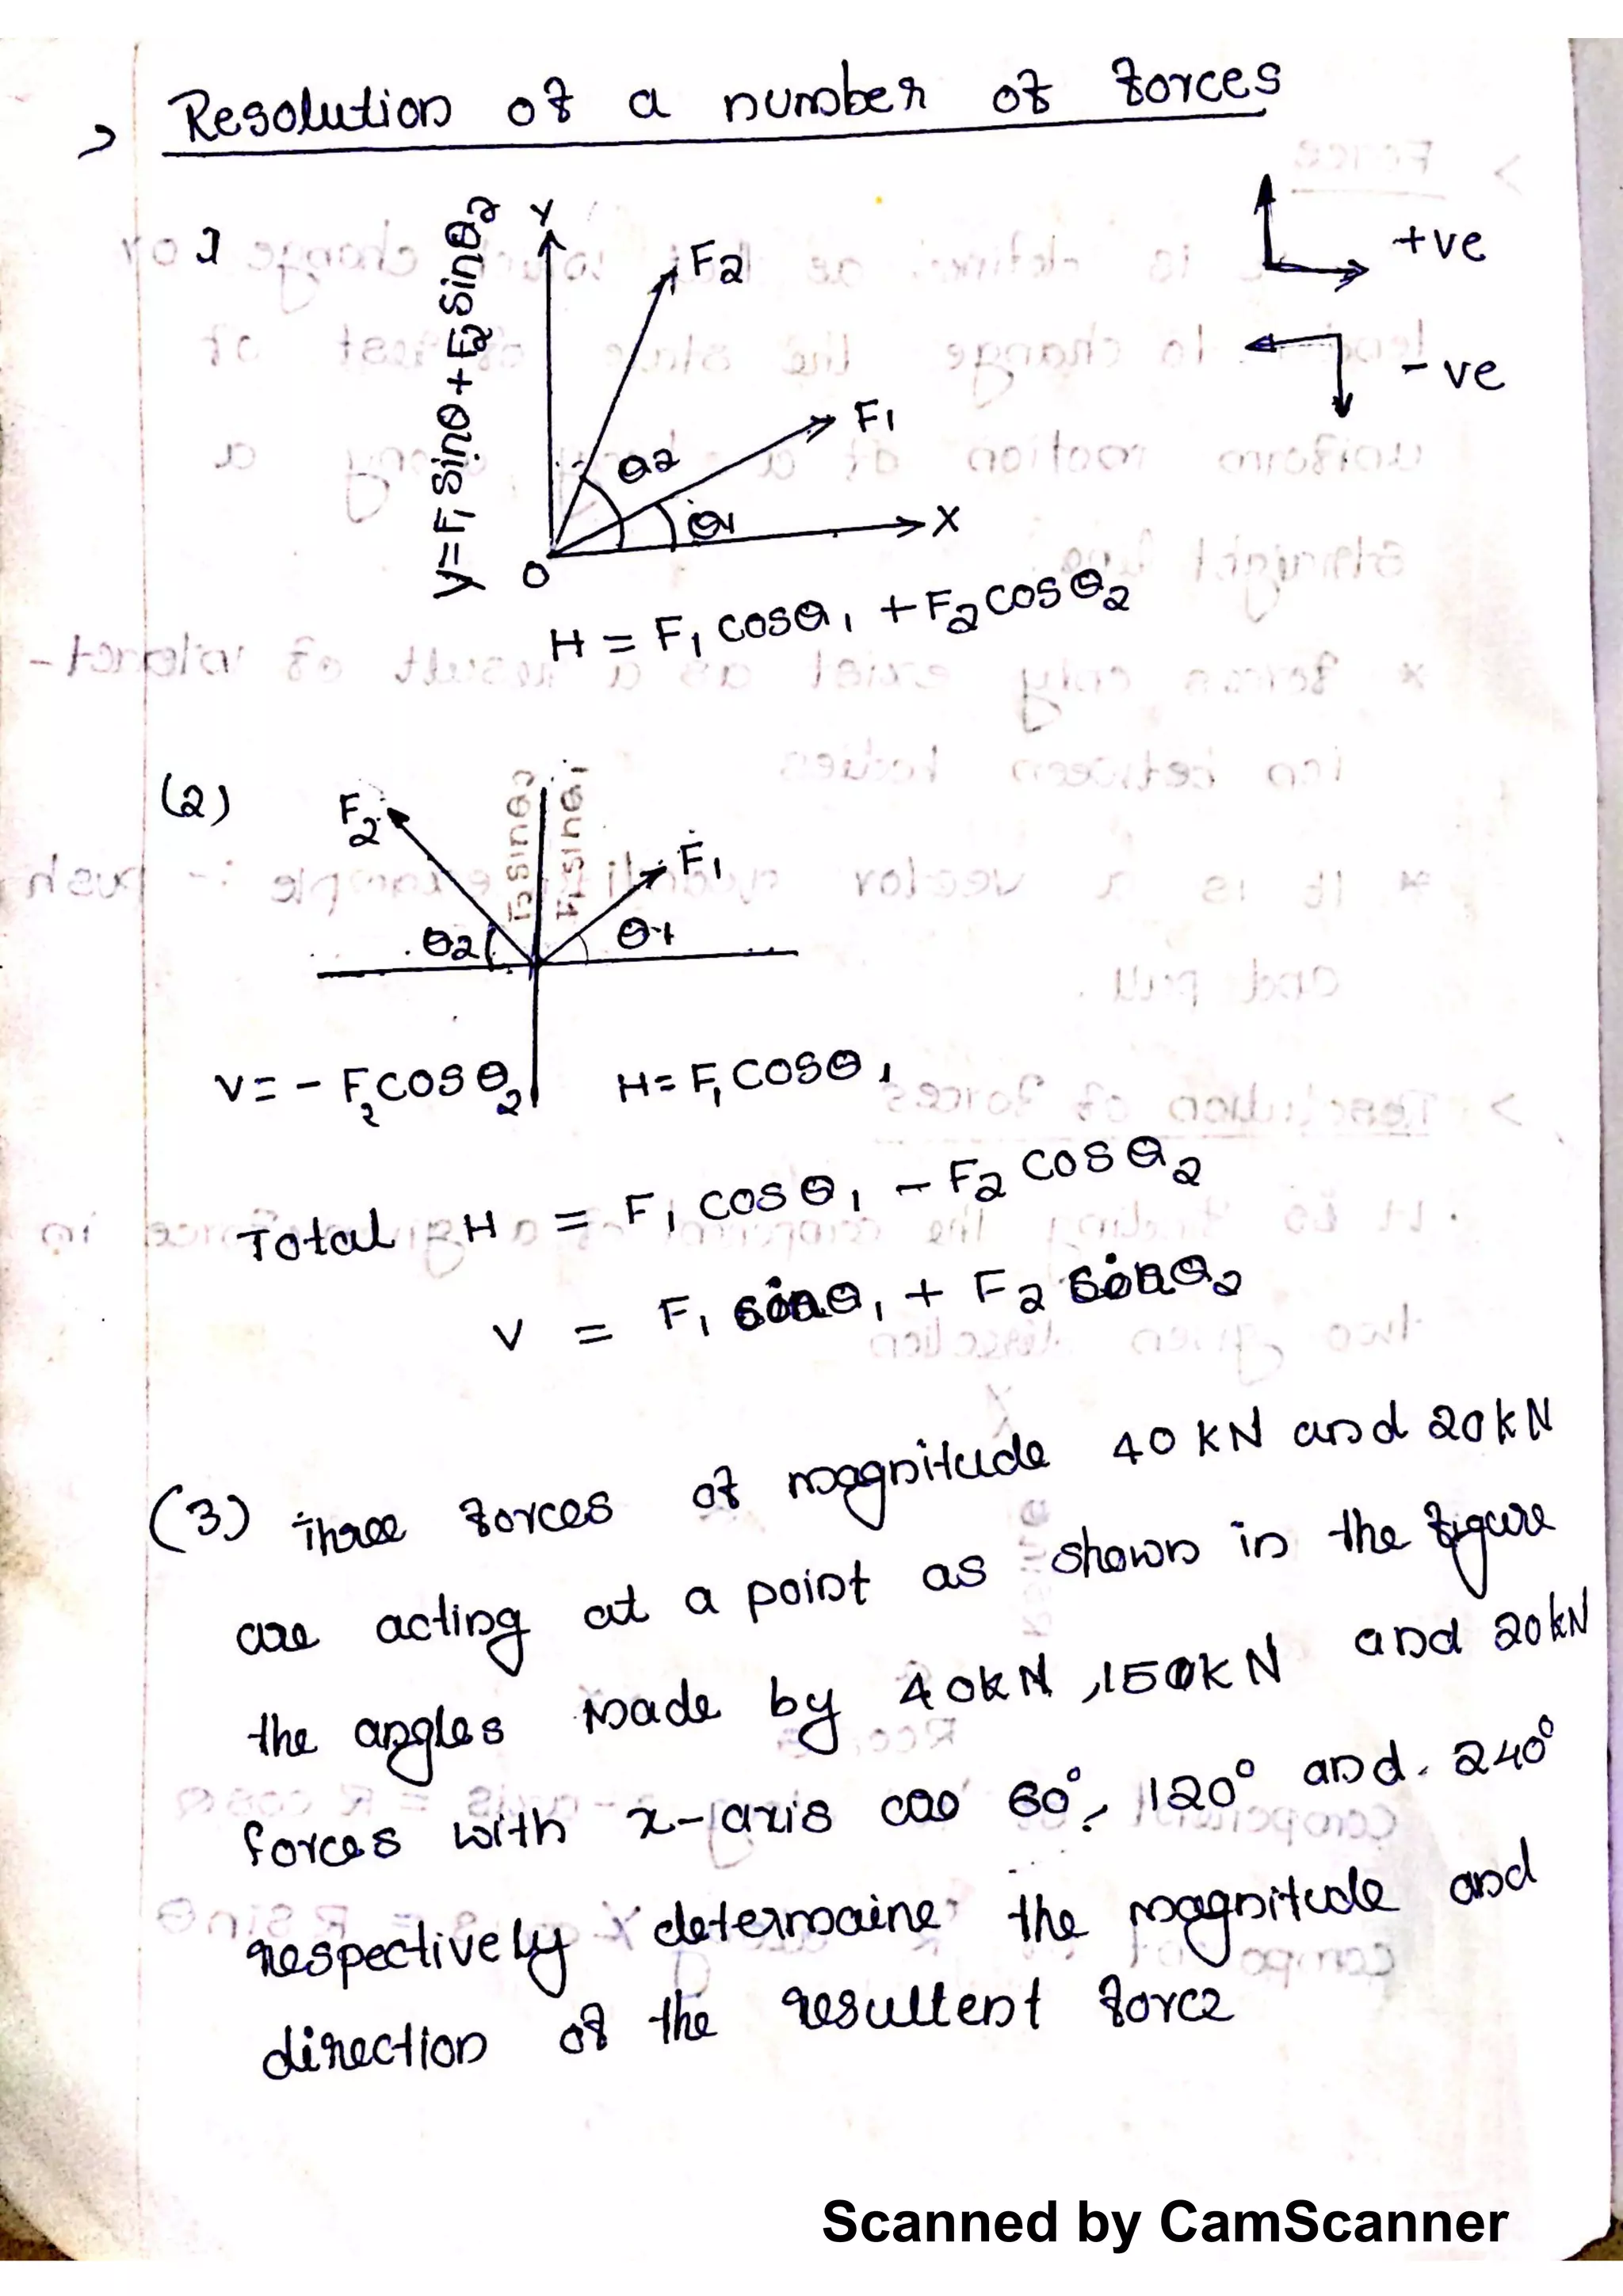 > Resolution of a number of forces
1
Y
F2
+ve
-ve
F1
θ2
θ1
X
O
y=F1 Sinθ+F2 Sinθ2
H = F1 cosθ1 + F2 cosθ2
(2)
F2
F2 sinθ2
F1 sinθ1
F1
θ2
θ1
V= - F2 cos θ2
H= F1 cosθ1
Total H = F1 cosθ1 - F2 cosθ2
V = F1 sinθ1 + F2 sinθ2
(3) Three forces of magnitude 40 kN and 20kN
are acting at a point as shown in the figure
the angles made by 40kN, 150kN and 20kN
forces with x-axis cao 60°, 120° and 240°
respectively determaine the magnitude and
direction of the resultent force
Scanned by CamScanner